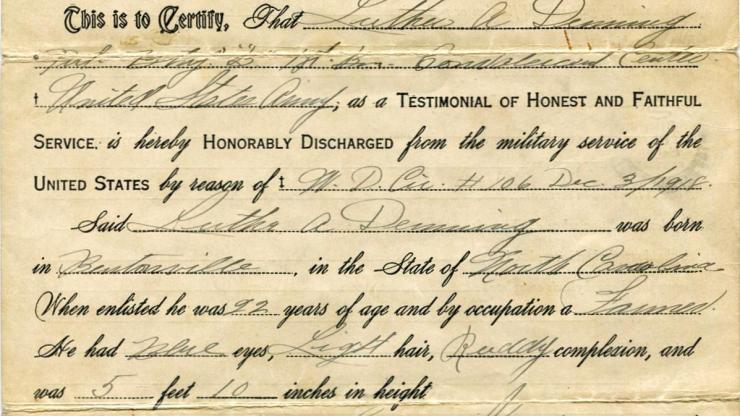 This is to Certify, That Luther A Denning
* Pvt. 1st. Bn. Convalescent Center
† United States Army; as a TESTIMONIAL OF HONEST AND FAITHFUL
SERVICE, is hereby HONORABLY DISCHARGED from the military service of the
UNITED STATES by reason of ‡ W. D. Cir. # 106 Dec. 3/1918.
Said Luther A Denning was born
in Bentonville, in the State of North Carolina
When enlisted he was 22 years of age and by occupation a Farmer.
He had Blue eyes, Light hair, Ruddy complexion, and
was 5 feet 10 inches in height